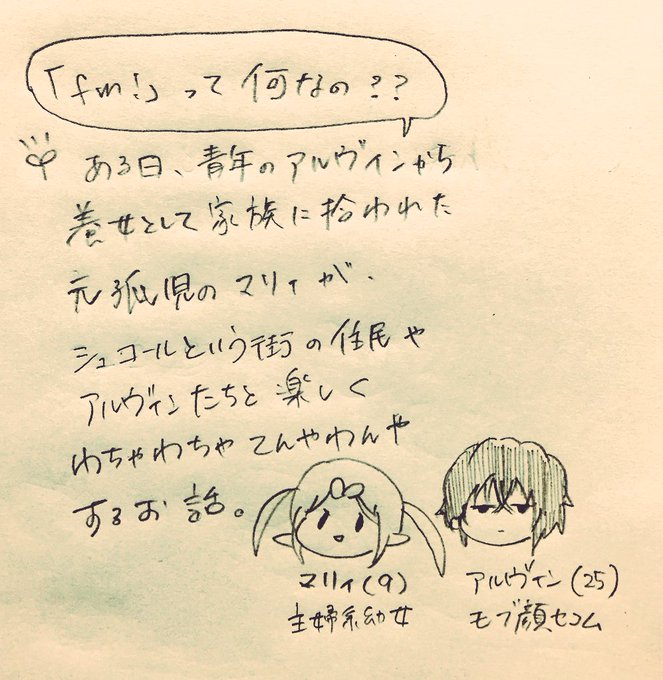 「fm!」って何なの??
ある日、青年のアルヴィンから
養女として家族に拾われた
元孤児のマリィが、
シュコールという街の住民や
アルヴィンたちと楽しく
わちゃわちゃてんやわんや
するお話。
マリィ(9)
主婦系幼女
アルヴィン(25)
モブ顔セコム